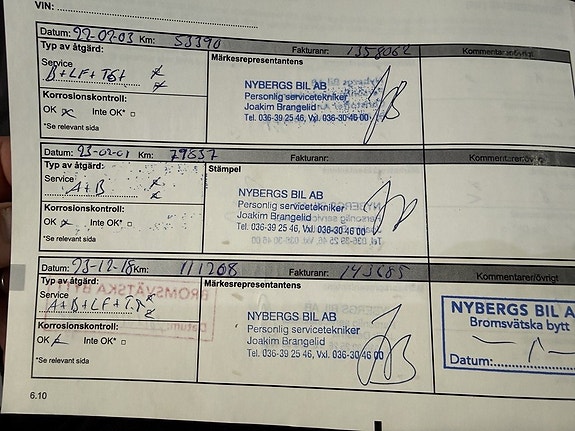 VIN:
Datum: 22-02-03 Km: 53390 Fakturanr: 1358062 Kommentarer/övrigt
Typ av åtgärd:
Service
Märkesrepresentantens
B+LF+
NYBERGS BIL AB
Personlig servicetekniker
Joakim Brangelid
Tel. 036-39 25 46, Vxl. 036-30 46 00
Korrosionskontroll:
OK Inte OK*
*Se relevant sida
Datum: 23-02-01 Km: 79837 Fakturanr: Kommentarer/övrigt
Typ av åtgärd:
Service
Stämpel
A+B
NYBERGS BIL AB
Personlig servicetekniker
Joakim Brangelid
Tel. 036-39 25 46, Vxl. 036-30 46 00
Korrosionskontroll:
OK Inte OK*
*Se relevant sida
Datum: 23-12-18 Km: 111208 Fakturanr: Kommentarer/övrigt
Typ av åtgärd:
Service
Märkesrepresentantens
A+B+LF+
NYBERGS BIL AB
Personlig servicetekniker
Joakim Brangelid
Tel. 036-39 25 46, Vxl. 036-30 46 00
NYBERGS BIL A
Bromsvätska bytt
Datum:
Korrosionskontroll:
OK Inte OK*
*Se relevant sida
6.10